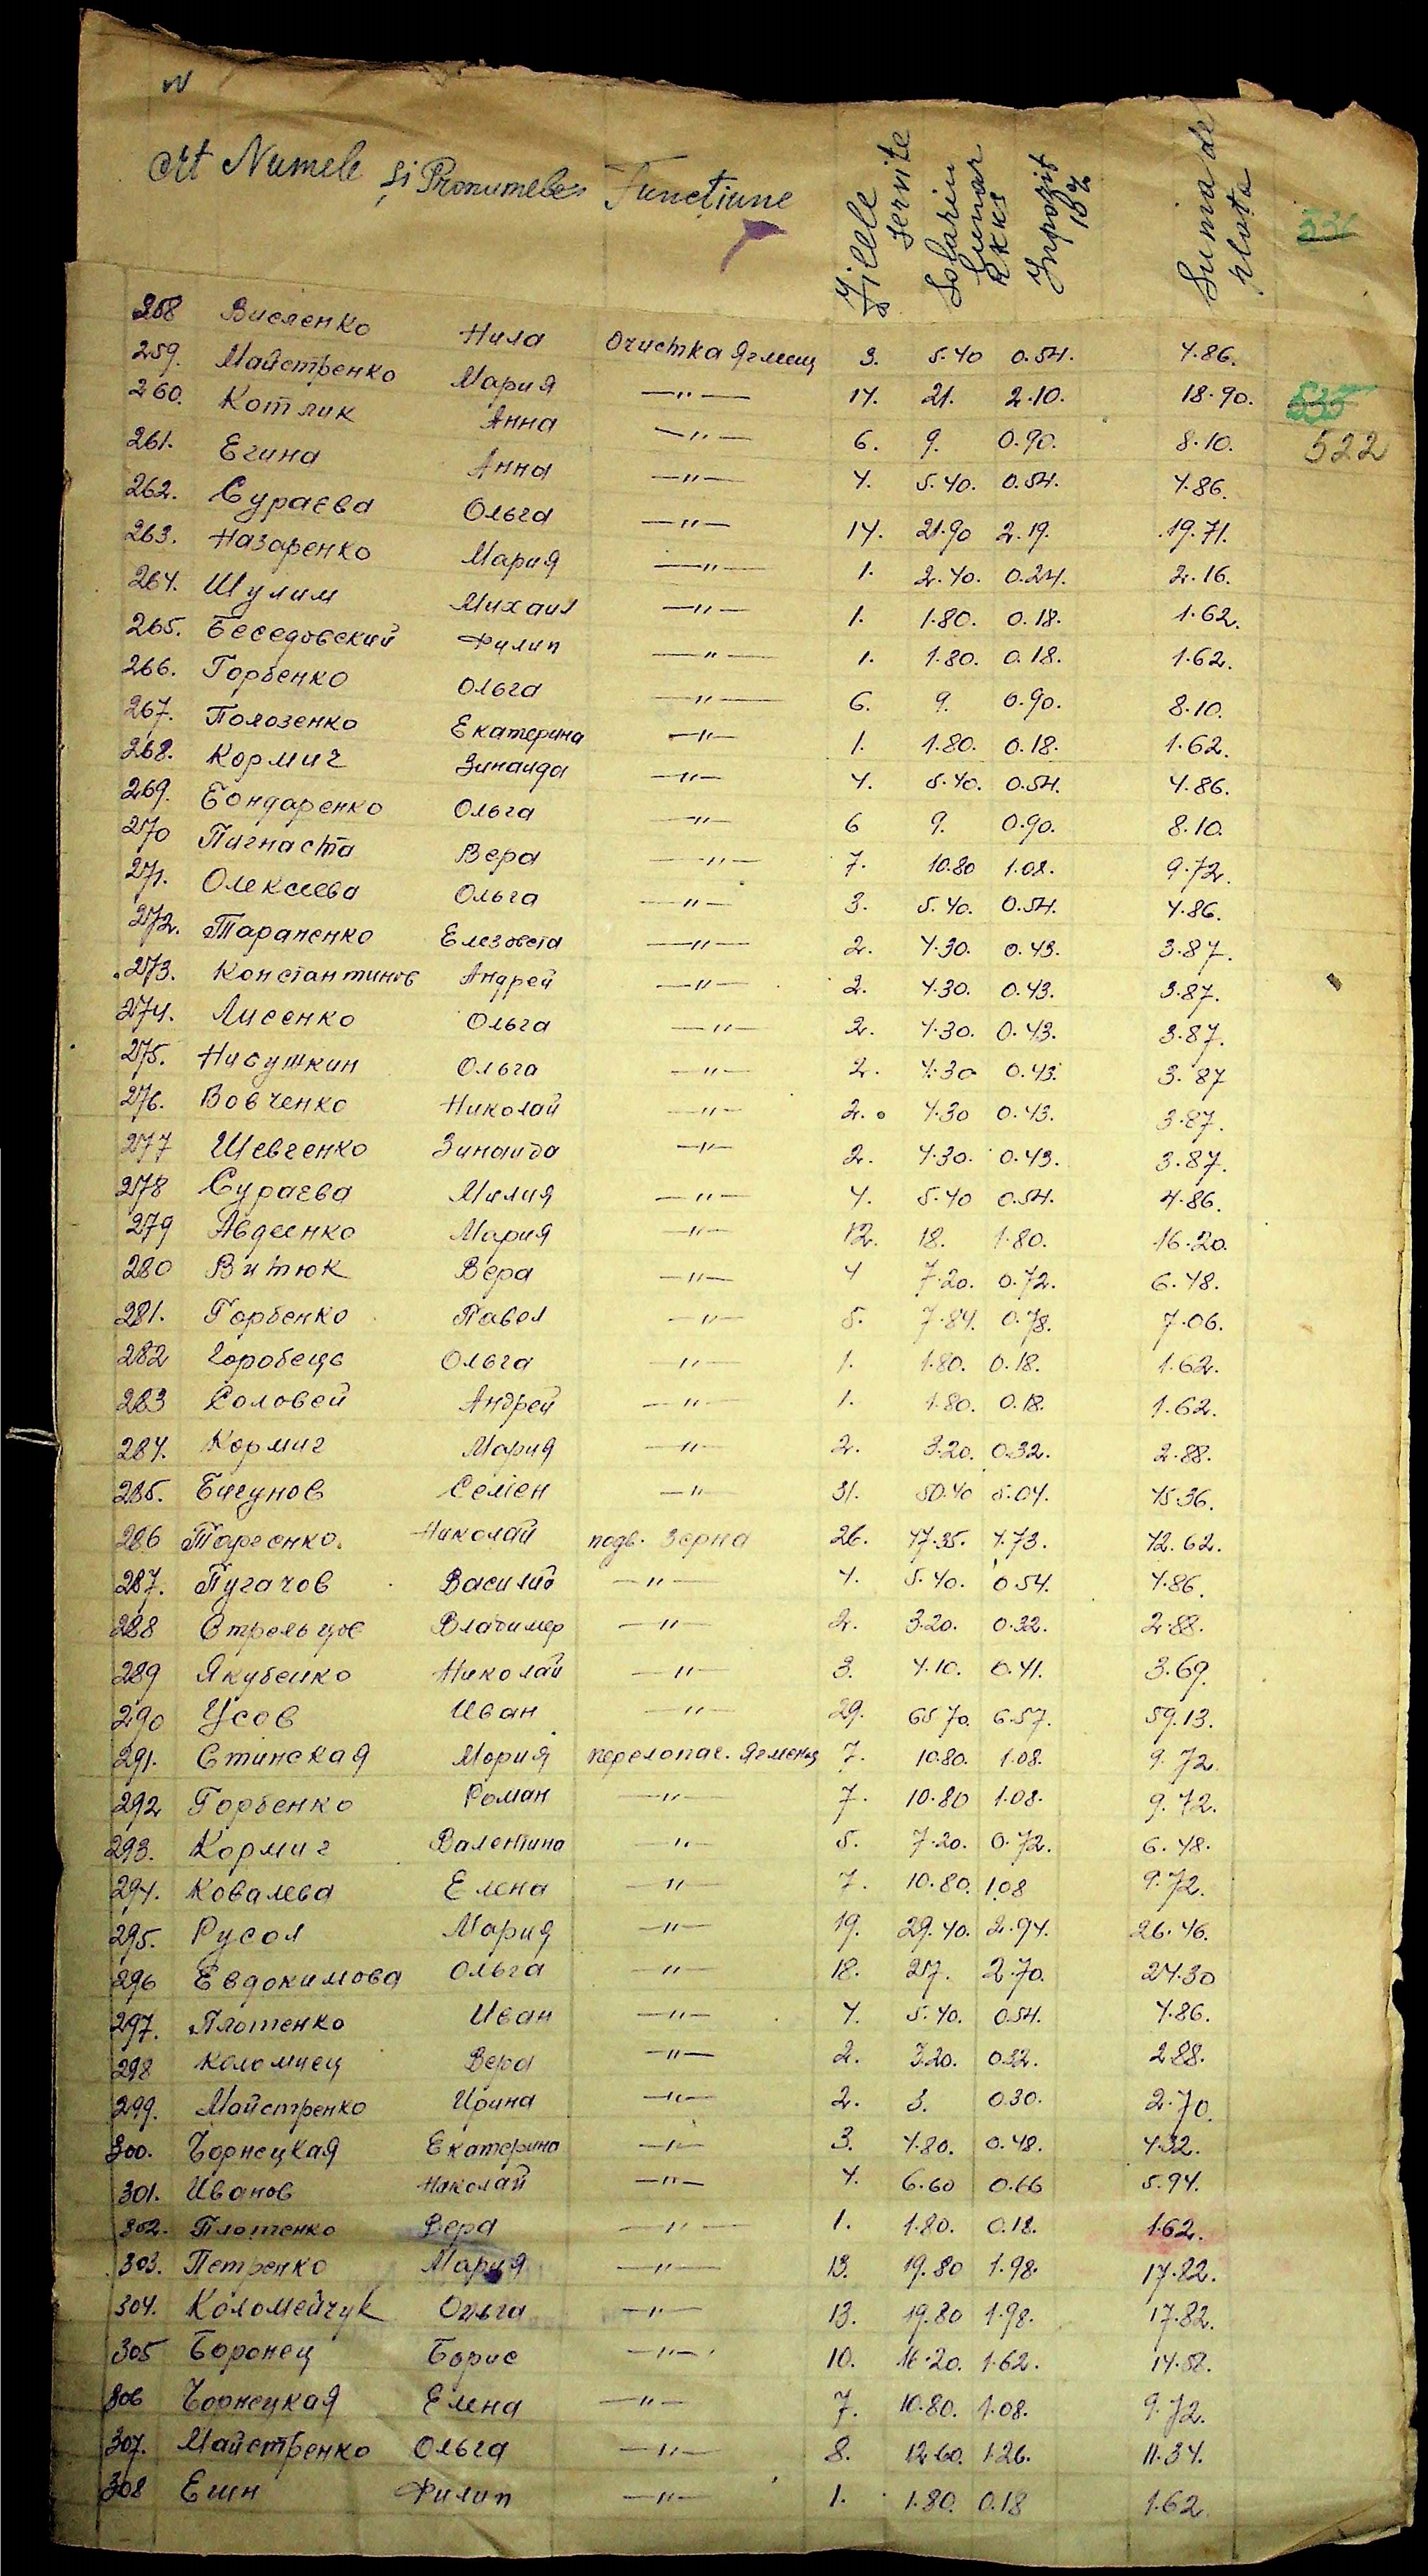 N
crt Numele și Pronumeles Funcțiune Zilele servite Solariu Lunar RKKS Inpozit 10% Suma de plata 531
258 Висленко Нила Очистка Ячмень 3. 5.40 0.54. 4.86.
259. Майстренко Мария —"— 14. 21. 2.10. 18.90. 535
260. Котлик Анна —"— 6. 9. 0.90. 8.10. 522
261. Егина Анна —"— 4. 5.40. 0.54. 4.86.
262. Сураева Ольга —"— 14. 21.90 2.19. 19.71.
263. Назаренко Мария —"— 1. 2.40. 0.24. 2.16.
264. Шулим Михаил —"— 1. 1.80. 0.18. 1.62.
265. Беседовский Филип —"— 1. 1.80. 0.18. 1.62.
266. Горбенко Ольга —"— 6. 9. 0.90. 8.10.
267. Полозенко Екатерина —"— 1. 1.80. 0.18. 1.62.
268. Кормич Зинаида —"— 4. 5.40. 0.54. 4.86.
269. Бондаренко Ольга —"— 6 9. 0.90. 8.10.
270 Пигнаста Вера —"— 7. 10.80 1.08. 9.72.
271. Олексеева Ольга —"— 3. 5.40. 0.54. 4.86.
272. Тараненко Елезовета —"— 2. 4.30. 0.43. 3.87.
273. Константинов Андрей —"— 2. 4.30. 0.43. 3.87.
274. Лисенко Ольга —"— 2. 4.30. 0.43. 3.87.
275. Нисушкин Ольга —"— 2. 4.30 0.43. 3.87
276. Вовченко Николай —"— 2. 4.30 0.43. 3.87.
277 Шевченко Зинаида —"— 2. 4.30. 0.43. 3.87.
278 Сураева Милия —"— 4. 5.40 0.54. 4.86.
279 Авдеенко Мария —"— 12. 18. 1.80. 16.20.
280 Витюк Вера —"— 4 7.20. 0.72. 6.48.
281. Горбенко Павел —"— 5. 7.84. 0.78. 7.06.
282 Горобець Ольга —"— 1. 1.80. 0.18. 1.62.
283 Соловей Андрей —"— 1. 1.80. 0.18. 1.62.
284. Кормич Мария —"— 2. 3.20. 0.32. 2.88.
285. Бигунов Семен —"— 31. 50.40 5.04. 45.36.
286 Торгенко. Николай подв. Зерна 26. 47.35. 4.73. 42.62.
287. Пугачов Василий —"— 4. 5.40. 0.54. 4.86.
288 Стрельцов Владимер —"— 2. 3.20. 0.32. 2.88.
289 Якубенко Николай —"— 3. 4.10. 0.41. 3.69.
290 Усов Иван —"— 29. 65.70. 6.57. 59.13.
291. Стинская Мария перелопач. Ячменя 7. 10.80. 1.08. 9.72.
292 Горбенко Роман —"— 7. 10.80 1.08. 9.72.
293. Кормич Валентина —"— 5. 7.20. 0.72. 6.48.
294. Ковалева Елена —"— 7. 10.80. 1.08 9.72.
295. Русол Мария —"— 19. 29.40. 2.94. 26.46.
296 Евдокимова Ольга —"— 18. 27. 2.70. 24.30
297. Плотенко Иван —"— 4. 5.40. 0.54. 4.86.
298 Коломиец Вера —"— 2. 3.20. 0.32. 2.88.
299. Майстренко Ирина —"— 2. 3. 0.30. 2.70.
300. Чорнецкая Екатерина —"— 3. 4.80. 0.48. 4.32.
301. Иванов Николай —"— 4. 6.60 0.66 5.94.
302. Плотенко Вера —"— 1. 1.80. 0.18. 1.62.
303. Петренко Мария —"— 13. 19.80 1.98. 17.82.
304. Коломейчук Ольга —"— 13. 19.80 1.98. 17.82.
305 Боронец Борис —"— 10. 16.20. 1.62. 14.58.
306 Чорнецкая Елена —"— 7. 10.80. 1.08. 9.72.
307. Майстренко Ольга —"— 8. 12.60. 1.26. 11.34.
308 Ешн Филип —"— 1. 1.80. 0.18 1.62.